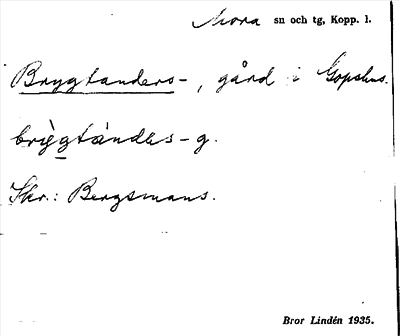 Mora sn och tg, Kopp. l.
Brygtanders-, gård i Gopshus.
brìgtàndẹs-g.
Skr.: Bergsmans.
Bror Lindén 1935.